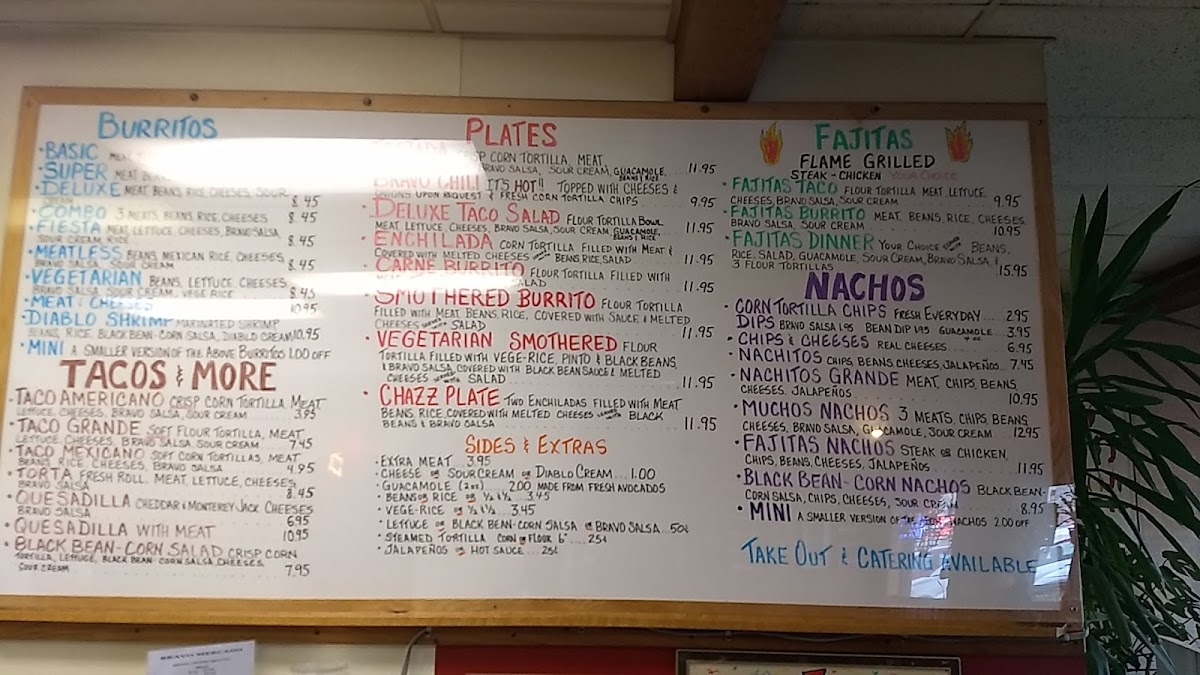 BURRITOS
·BASIC MEAT
·SUPER MEAT
·DELUXE MEAT, BEANS, RICE, CHEESES, SOUR
CREAM 8.45
·COMBO 3 MEATS, BEANS, RICE, CHEESES 8.45
·FIESTA MEAT, LETTUCE, CHEESES, BRAVO SALSA,
SOUR CREAM, RICE 8.45
·MEATLESS BEANS, MEXICAN RICE, CHEESES,
BRAVO SALSA, SOUR CREAM 8.45
·VEGETARIAN BEANS, LETTUCE, CHEESES,
BRAVO SALSA, SOUR CREAM, VEGE RICE 8.45
·MEAT & CHEESES 10.95
·DIABLO SHRIMP MARINATED SHRIMP
BEANS, RICE, BLACK BEAN-CORN SALSA, DIABLO CREAM 10.95
·MINI A SMALLER VERSION OF THE ABOVE BURRITOS 1.00 OFF
TACOS & MORE
·TACO AMERICANO CRISP CORN TORTILLA, MEAT
LETTUCE, CHEESES, BRAVO SALSA, SOUR CREAM 3.95
·TACO GRANDE SOFT FLOUR TORTILLA, MEAT
LETTUCE, CHEESES, BRAVO SALSA, SOUR CREAM 7.45
·TACO MEXICANO SOFT CORN TORTILLAS, MEAT
BEANS, RICE, CHEESES, BRAVO SALSA 4.95
·TORTA FRESH ROLL, MEAT, LETTUCE, CHEESES,
BRAVO SALSA 8.45
·QUESADILLA CHEDDAR & MONTEREY JACK CHEESES
BRAVO SALSA 6.95
·QUESADILLA WITH MEAT 10.95
·BLACK BEAN-CORN SALAD CRISP CORN
TORTILLA, LETTUCE, BLACK BEAN-CORN SALSA, CHEESES,
SOUR CREAM 7.95
PLATES
CRISP CORN TORTILLA, MEAT,
BRAVO SALSA, SOUR CREAM, GUACAMOLE, BEANS & RICE 11.95
BRAVO CHILI IT'S HOT!! TOPPED WITH CHEESES &
ONIONS UPON REQUEST & FRESH CORN TORTILLA CHIPS 9.95
·DELUXE TACO SALAD FLOUR TORTILLA BOWL
MEAT, LETTUCE, CHEESES, BRAVO SALSA, SOUR CREAM, GUACAMOLE, BEANS & RICE 11.95
·ENCHILADA CORN TORTILLA FILLED WITH MEAT &
COVERED WITH MELTED CHEESES SERVED WITH BEANS, RICE, SALAD 11.95
·CARNE BURRITO FLOUR TORTILLA FILLED WITH
SALAD 11.95
·SMOTHERED BURRITO FLOUR TORTILLA
FILLED WITH MEAT, BEANS, RICE, COVERED WITH SAUCE & MELTED
CHEESES SERVED WITH SALAD 11.95
·VEGETARIAN SMOTHERED FLOUR
TORTILLA FILLED WITH VEGE-RICE, PINTO & BLACK BEANS,
& BRAVO SALSA, COVERED WITH BLACK BEAN SAUCE & MELTED
CHEESES SERVED WITH SALAD 11.95
·CHAZZ PLATE TWO ENCHILADAS FILLED WITH MEAT
BEANS, RICE, COVERED WITH MELTED CHEESES SERVED WITH BLACK
BEANS & BRAVO SALSA 11.95
SIDES & EXTRAS
·EXTRA MEAT 3.95
·CHEESE OR SOUR CREAM OR DIABLO CREAM 1.00
·GUACAMOLE (2oz) 2.00 MADE FROM FRESH AVOCADOS
·BEANS OR RICE OR ½ & ½ 3.45
·VEGE-RICE OR ½ & ½ 3.45
·LETTUCE OR BLACK BEAN-CORN SALSA OR BRAVO SALSA 50¢
·STEAMED TORTILLA CORN OR FLOUR 6" 25¢
·JALAPEÑOS OR HOT SAUCE 25¢
FAJITAS
FLAME GRILLED
STEAK - CHICKEN YOUR CHOICE
·FAJITAS TACO FLOUR TORTILLA MEAT, LETTUCE,
CHEESES, BRAVO SALSA, SOUR CREAM 9.95
·FAJITAS BURRITO MEAT, BEANS, RICE, CHEESES,
BRAVO SALSA, SOUR CREAM 10.95
·FAJITAS DINNER YOUR CHOICE BEANS,
RICE, SALAD, GUACAMOLE, SOUR CREAM, BRAVO SALSA, &
3 FLOUR TORTILLAS 15.95
NACHOS
·CORN TORTILLA CHIPS FRESH EVERYDAY 2.95
DIPS BRAVO SALSA 1.95 BEAN DIP 1.95 GUACAMOLE 4 oz 3.95
·CHIPS & CHEESES REAL CHEESES 6.95
·NACHITOS CHIPS, BEANS, CHEESES, JALAPEÑOS 7.45
·NACHITOS GRANDE MEAT, CHIPS, BEANS,
CHEESES, JALAPEÑOS 10.95
·MUCHOS NACHOS 3 MEATS, CHIPS, BEANS,
CHEESES, BRAVO SALSA, GUACAMOLE, SOUR CREAM 12.95
·FAJITAS NACHOS STEAK OR CHICKEN,
CHIPS, BEANS, CHEESES, JALAPEÑOS 11.95
·BLACK BEAN-CORN NACHOS BLACK BEAN-
CORN SALSA, CHIPS, CHEESES, SOUR CREAM 8.95
·MINI A SMALLER VERSION OF THE ABOVE NACHOS 2.00 OFF
TAKE OUT & CATERING AVAILABLE
BRAVO MERCADO